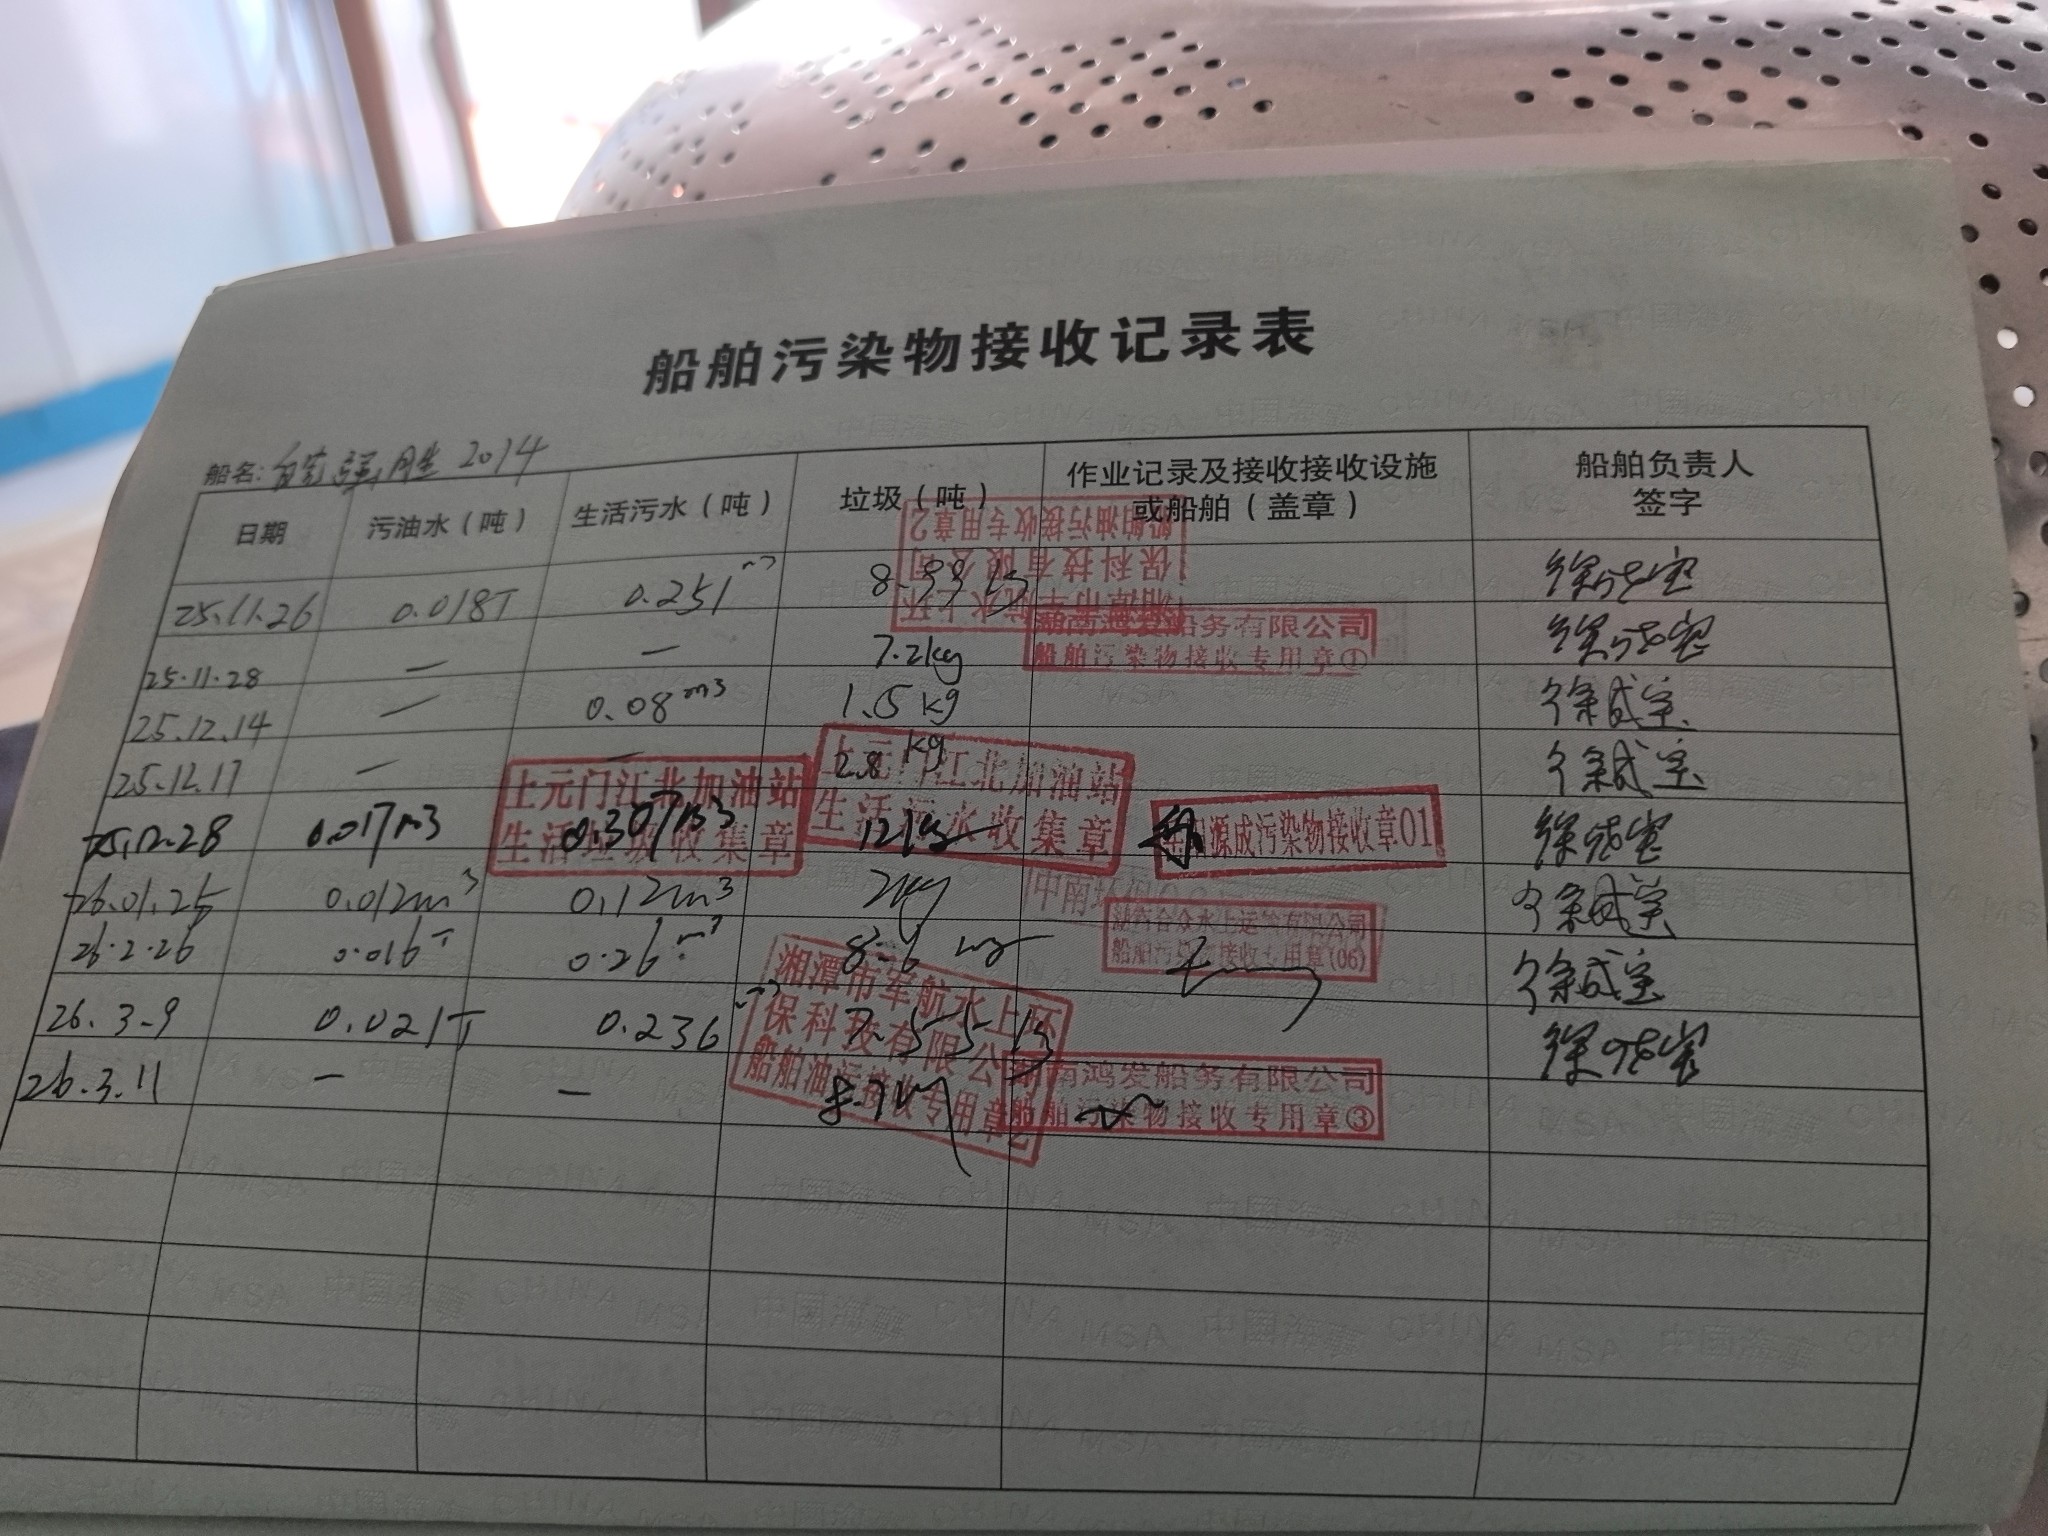 船舶污染物接收记录表
船名: 2014
日期 污油水（吨） 生活污水（吨） 垃圾（吨） 作业记录及接收接收设施或船舶（盖章） 船舶负责人签字
25.11.26 0.018T 0.251m³
湘潭市军航水上环
保科技有限公司
船舶油污接收专用章2
25.11.28 — — 7.2kg
湖南鸿发船务有限公司
船舶污染物接收专用章①
25.12.14 — 0.08m3 1.5kg 徐成宝
25.12.17 — — 2.8kg 徐成宝
上元门江北加油站
生活垃圾收集章
上元门江北加油站
生活污水收集章
25.12.28 0.017m3 0.307m3 12kg
源成污染物接收章01
26.01.25 0.012m3 0.12m3 2kg 徐成宝
26.2.26 0.016T 0.26m³ 8.6 徐成宝
合众水上运 有限公司
船舶污染物接收专用章(06)
26.3.9 0.021T 0.236m³
湘潭市军航水上环
保科技有限公司
船舶油污接收专用章2
26.3.11 — —
南鸿发船务有限公司
船舶污染物接收专用章③
中国海事 CHINA MSA